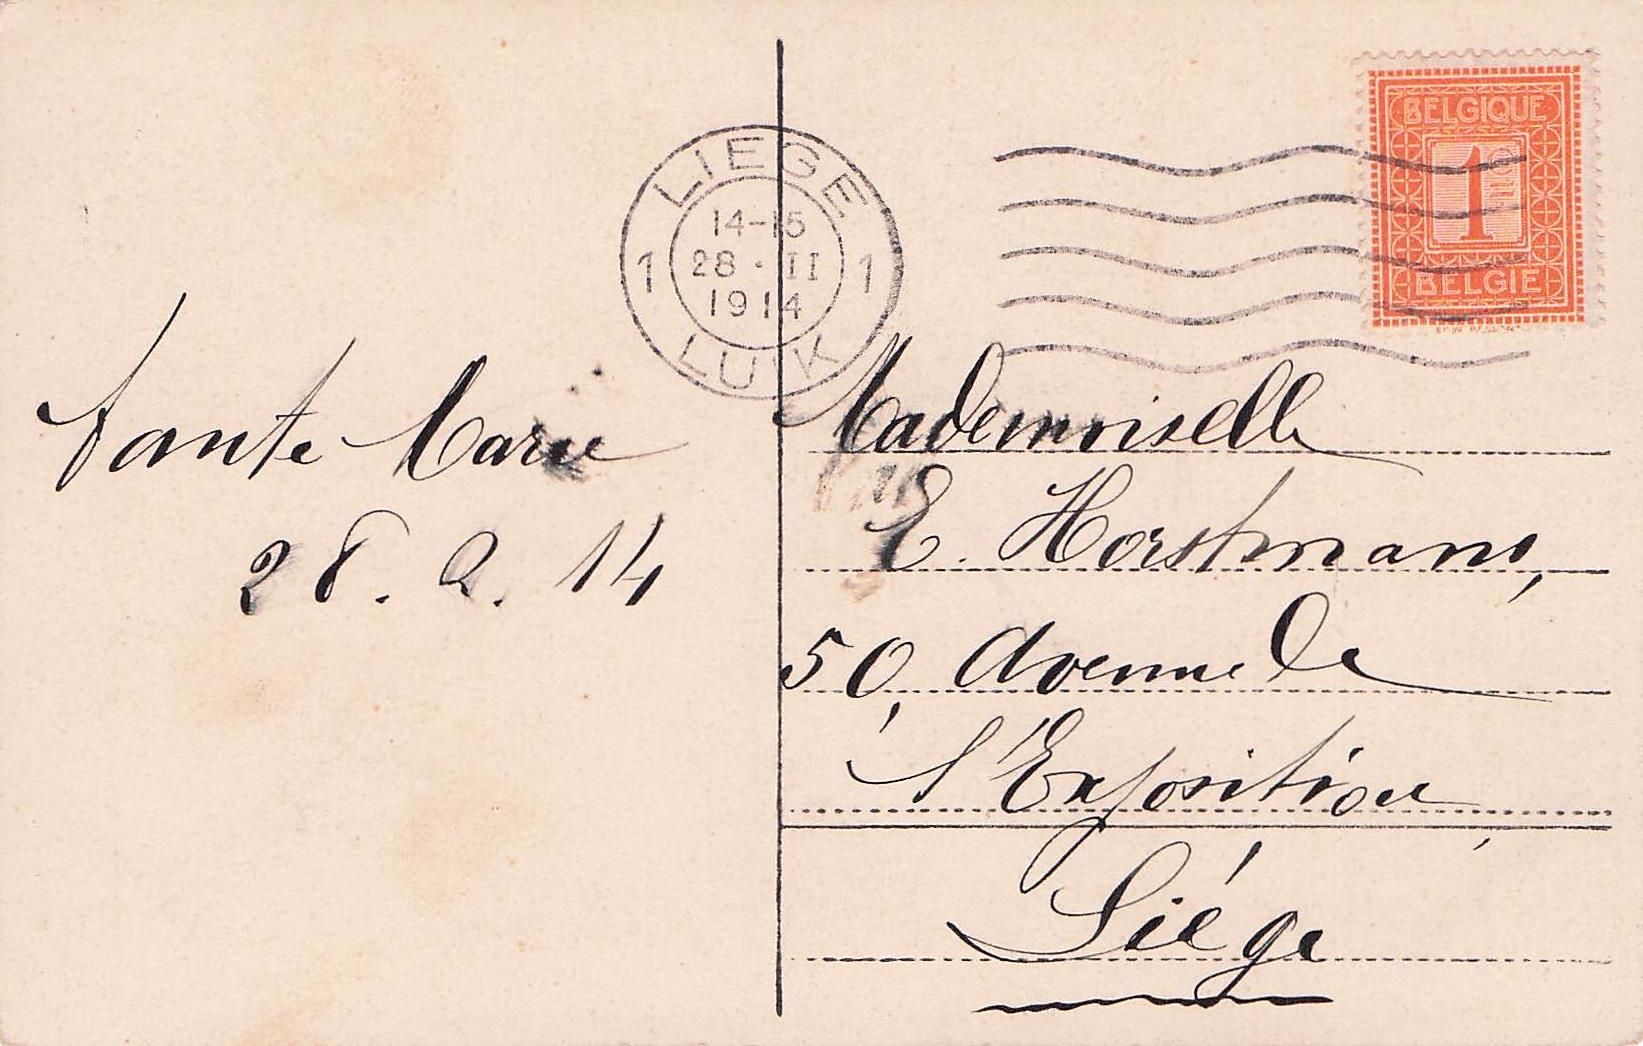 Tante Marie
28. 2. 14
LIEGE
14-15
28 · II
1914
1 1
LUIK
BELGIQUE
1
BELGIE
Mademoiselle
E. Horstmans,
50, Avenue de
l'Exposition,
Liége